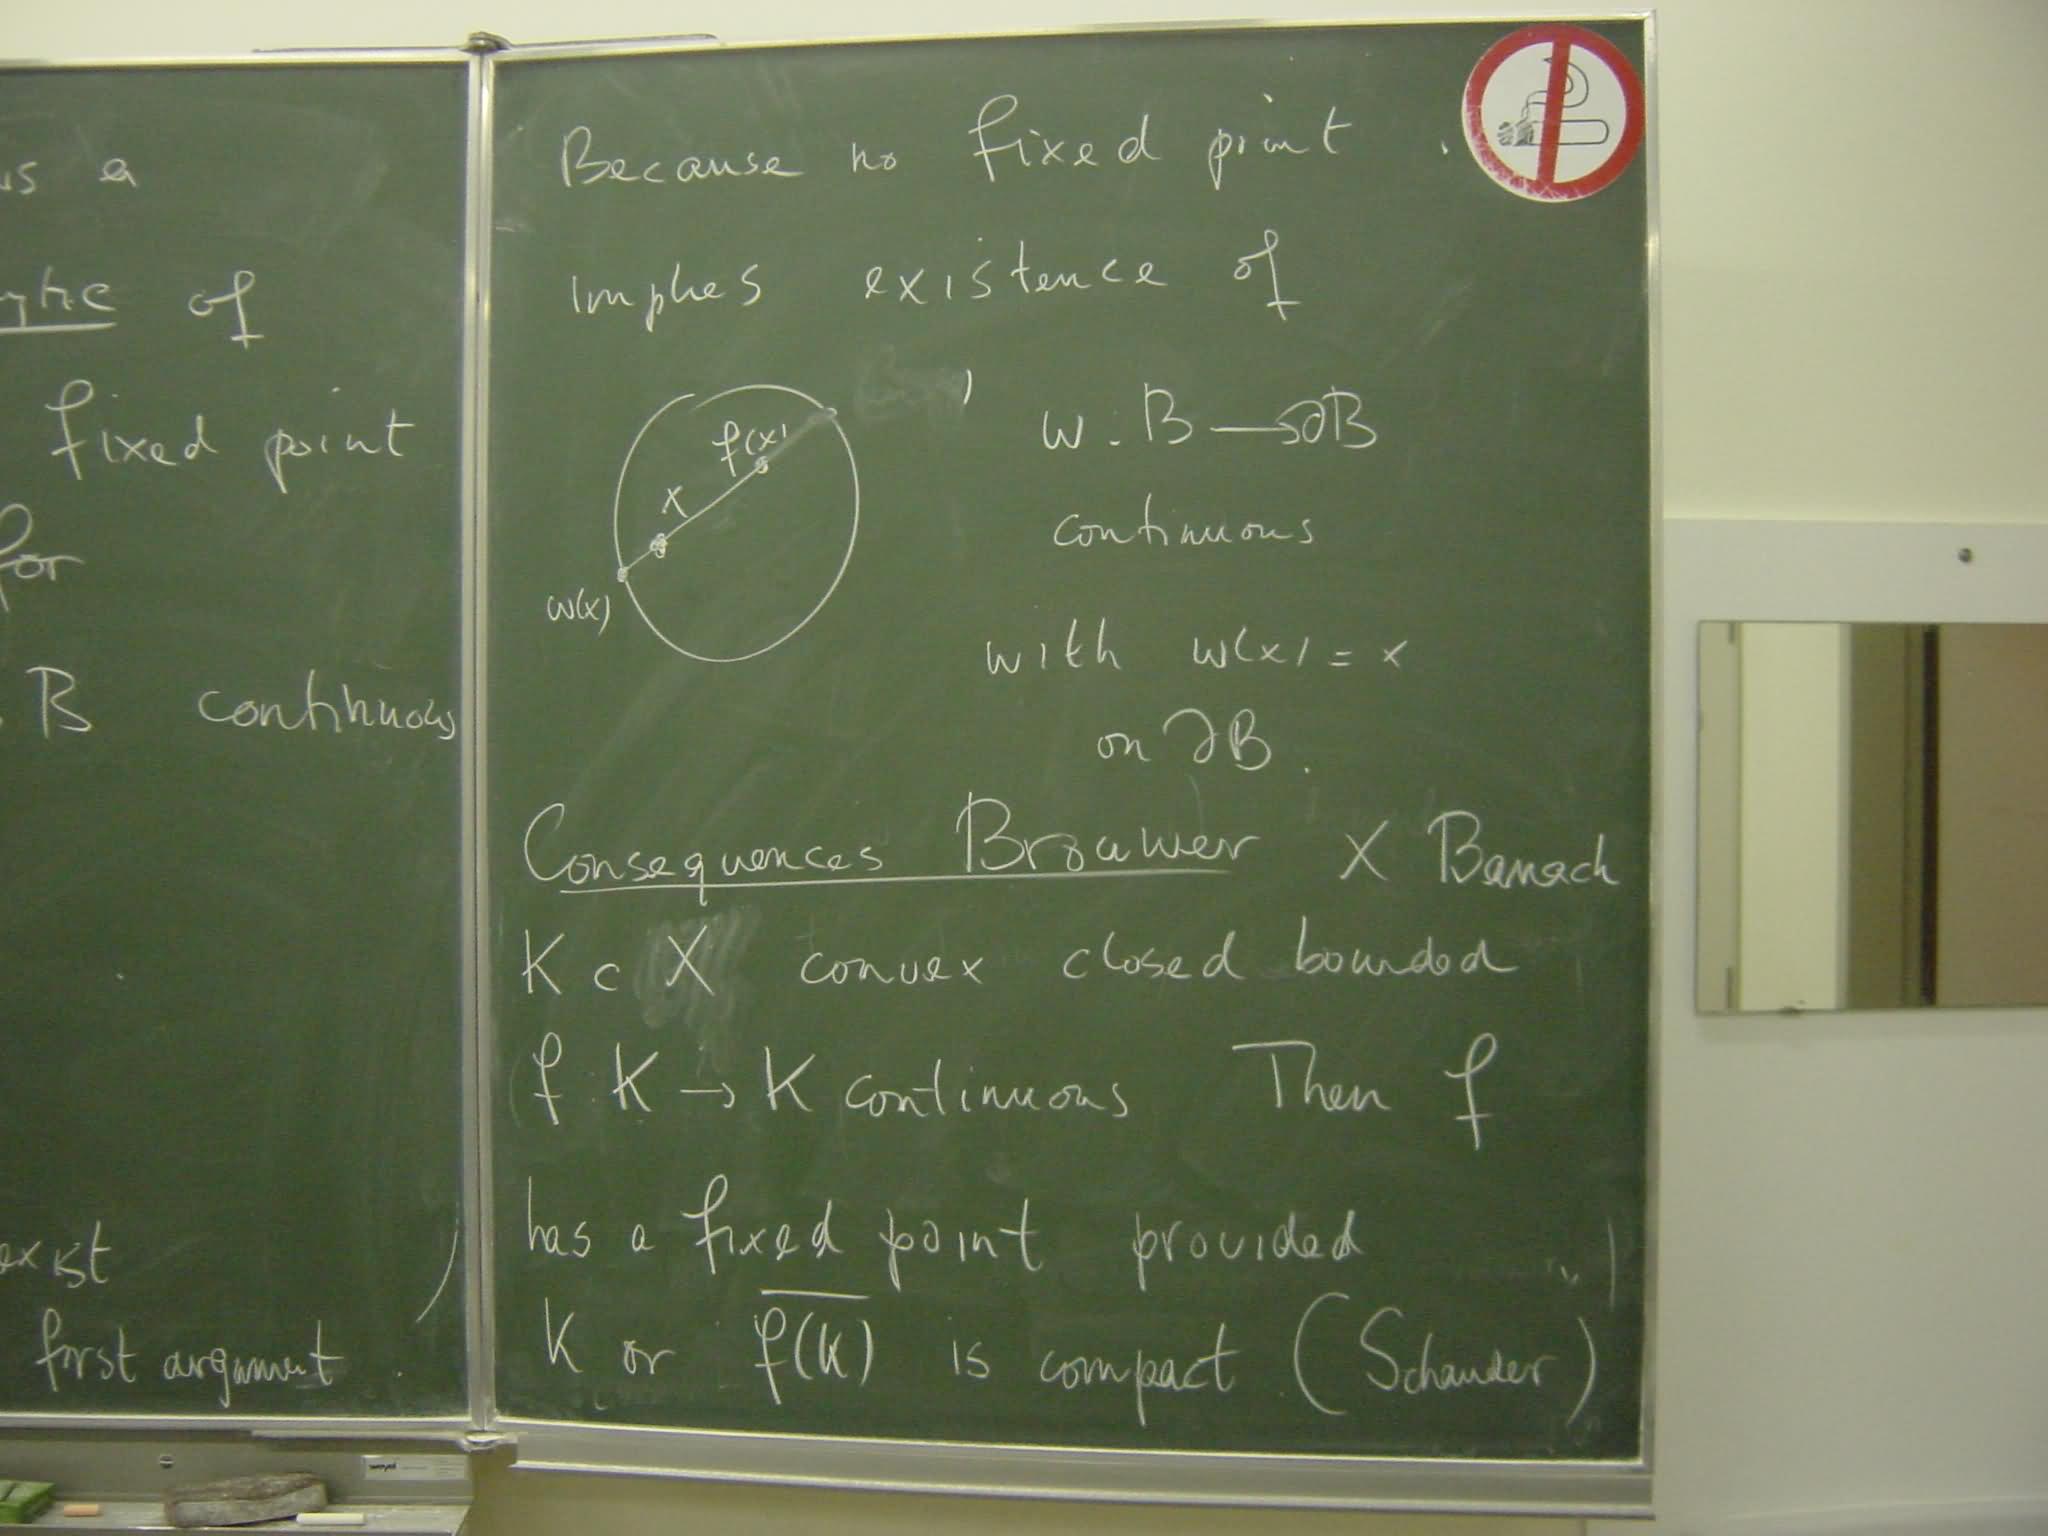 us a
of
fixed point
for
B continuous
exist
first argument.
Because no fixed point
implies existence of
f(x)
x
w(x)
w : B → ∂B
continuous
with w(x) = x
on ∂B.
Consequences Brouwer X Banach
K ⊂ X convex closed bounded
f : K → K continuous Then f
has a fixed point provided
K or \overline{f(K)} is compact (Schauder)